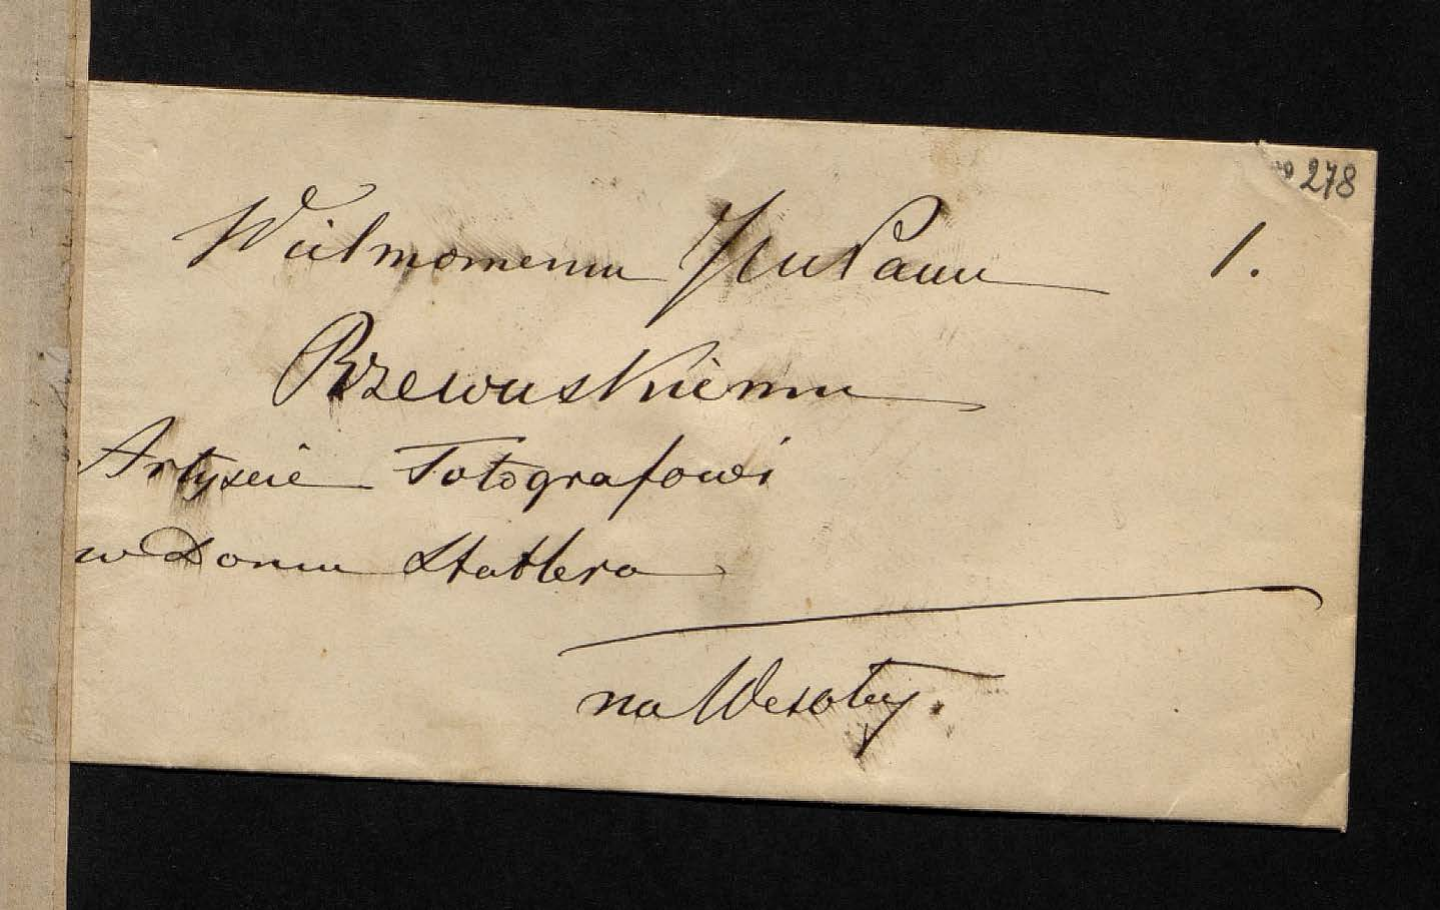 278
Wielmożnemu JWPanu 1.
Rzewuskiemu
Artyście Fotografowi
w Domu Statlera
na Wesoły.